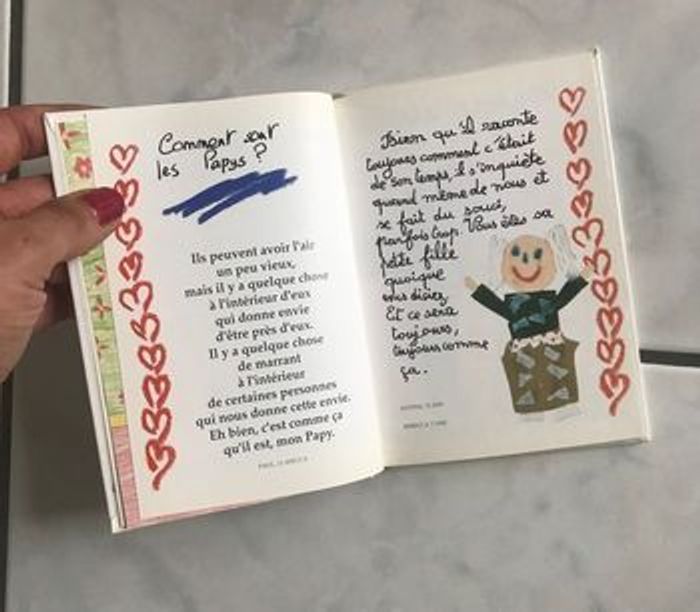 Comment sont
les Papys ?
Ils peuvent avoir l'air
un peu vieux,
mais il y a quelque chose
à l'intérieur d'eux
qui donne envie
d'être près d'eux.
Il y a quelque chose
de marrant
à l'intérieur
de certaines personnes
qui nous donne cette envie.
Eh bien, c'est comme ça
qu'il est, mon Papy.
Bien qu'il raconte
toujours comment c'était
de son temps, il s'inquiète
quand même de nous et
se fait du souci,
parfois trop. Vous êtes sa
petite fille
quoique
vous disiez
Et ce sera
toujours,
toujours comme
ça.